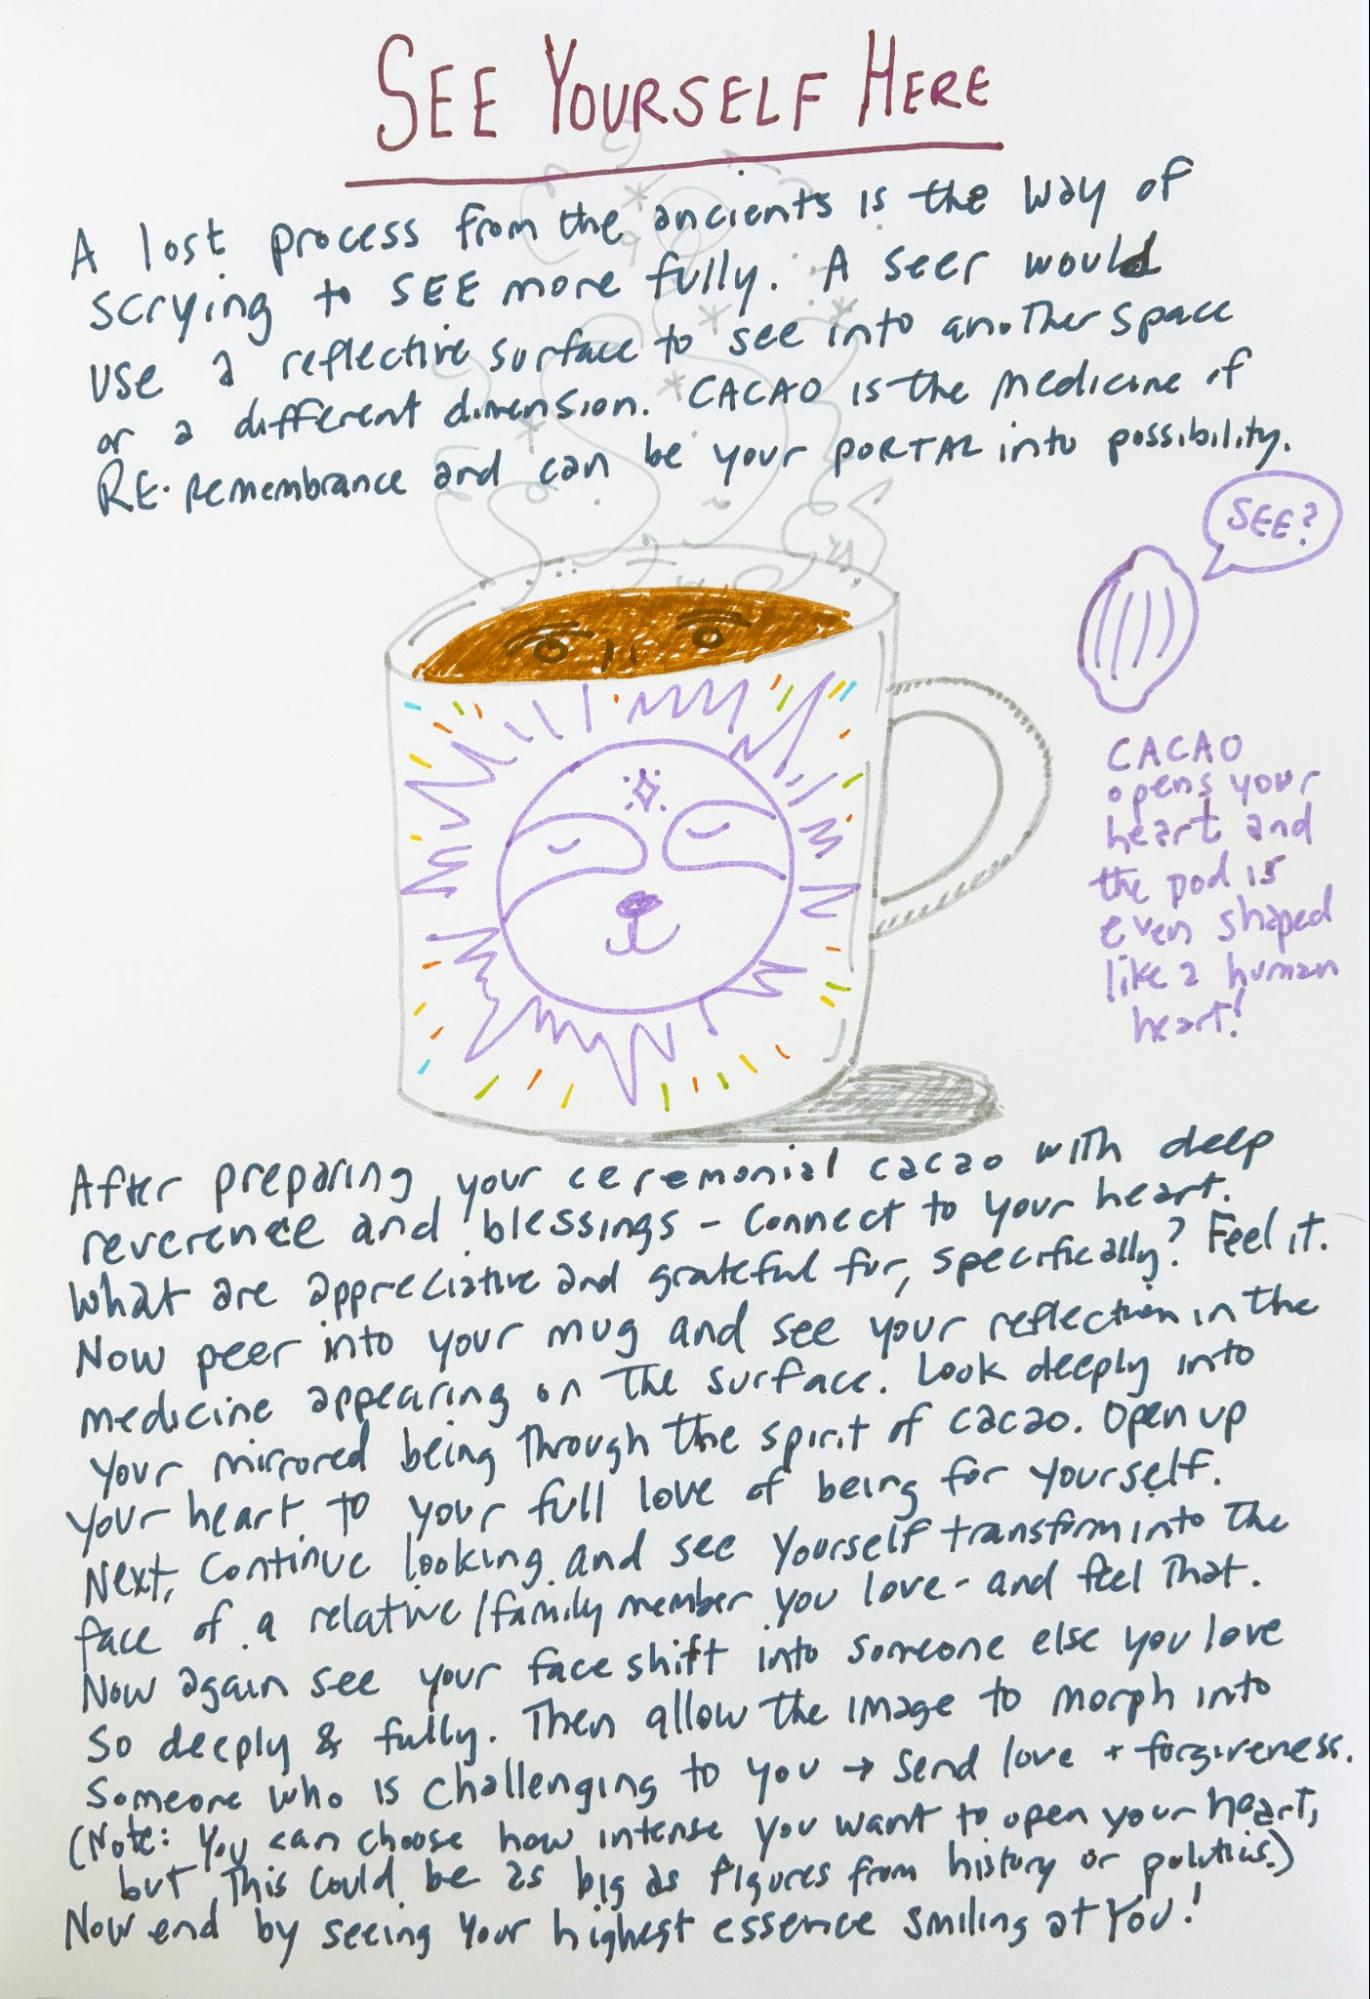 SEE YOURSELF HERE
A lost process from the ancients is the way of
scrying to SEE more fully. A seer would
use a reflective surface to see into another space
or a different dimension. CACAO is the medicine of
RE-remembrance and can be your PORTAL into possibility.
SEE?
CACAO
opens your
heart and
the pod is
even shaped
like a human
heart!
After preparing your ceremonial cacao with deep
reverence and blessings - Connect to your heart.
What are appreciative and grateful for, specifically? Feel it.
Now peer into your mug and see your reflection in the
medicine appearing on the surface. Look deeply into
your mirrored being through the spirit of cacao. Open up
your heart to your full love of being for yourself.
Next, continue looking and see yourself transform into the
face of a relative/family member you love - and feel that.
Now again see your face shift into someone else you love
so deeply & fully. Then allow the image to morph into
someone who is challenging to you → send love + forgiveness.
(Note: You can choose how intense you want to open your heart,
but this could be as big as figures from history or politics.)
Now end by seeing your highest essence smiling at You!